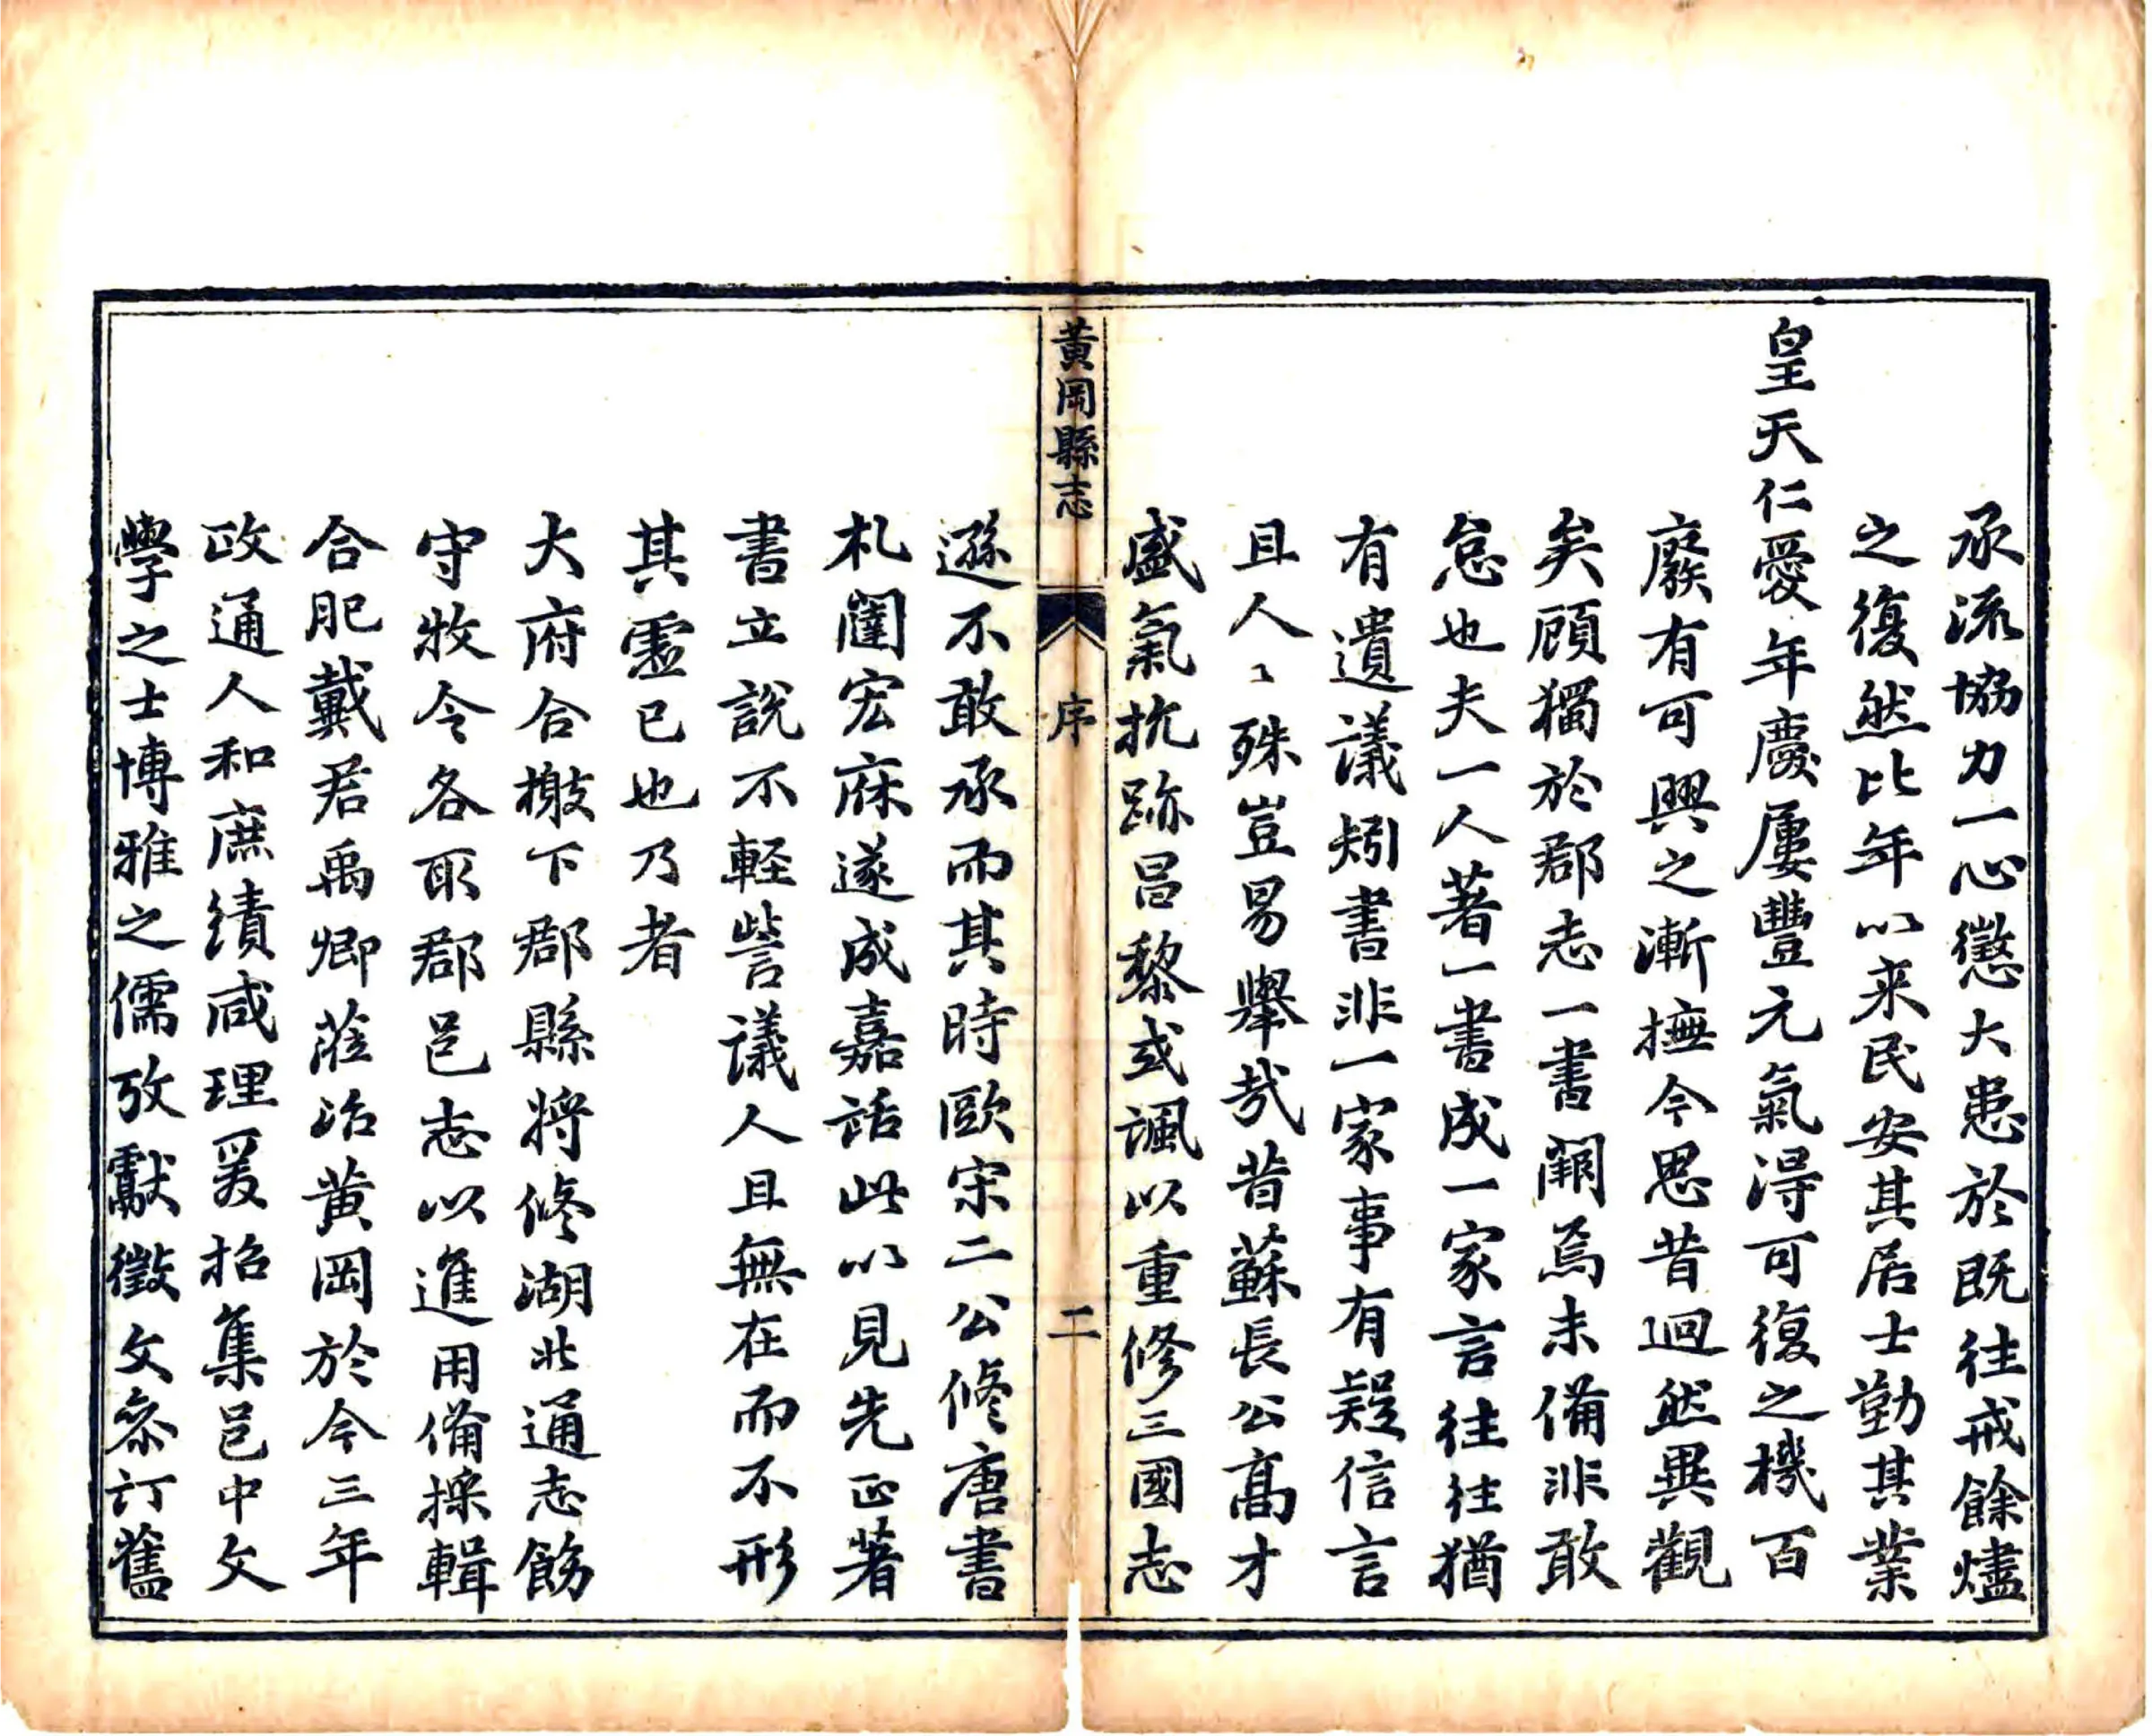 承流協力一心懲大患於既往戒餘燼
之復然比年以来民安其居士勤其業
皇天仁愛年慶屢豐元氣淂可復之機百
廢有可興之漸撫今思昔迴然異觀
矣顧獨於郡志一書闕焉未備非敢
怠也夫一人著一書成一家言往往猶
有遺議矧書非一家事有疑信言
且人〻殊豈易舉哉昔蘇長公高才
盛氣抗跡昌黎或諷以重修三國志
黃岡縣志
序
二
遜不敢承而其時歐宋二公修唐書
札闥宏庥遂成嘉話此以見先正著
書立說不輕訾議人且無在而不形
其虛已也乃者
大府合檄下郡縣將修湖北通志飭
守牧令各取郡邑志以進用備採輯
合肥戴君禹卿蒞治黃岡於今三年
政通人和庶績咸理爰招集邑中文
學之士博雅之儒攷獻徵文叅訂舊